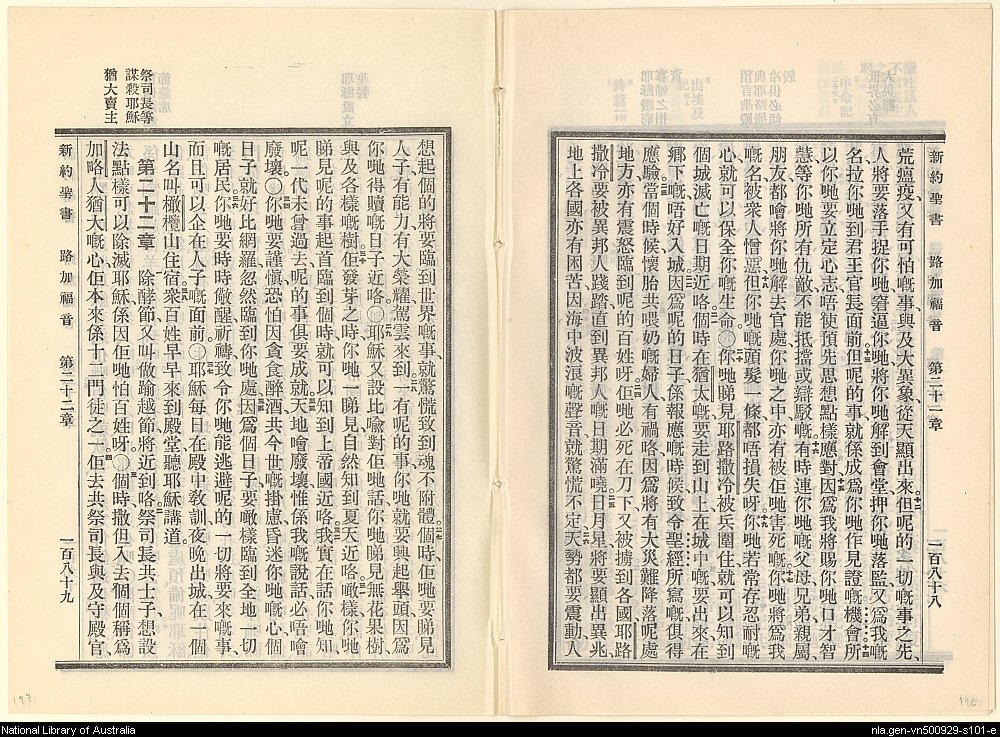 新約聖書 路加福音 第二十一章 一百八十八
荒瘟疫、又有可怕嘅事、與及大異象、從天顯出來、但呢的一切嘅事之先、
人將要落手捉你哋、窘逼你哋、將你哋解到會堂、押你哋落監、又爲我嘅
名、拉你哋到君王官長面前、但呢的事、就係成爲你哋作見證嘅機會、所
以你哋要立定心志、唔使預先思想點樣應對、因爲我將賜你哋口才智
慧、等你哋所有仇敵、不能抵擋或辯駁嘅、有時連你哋嘅父母兄弟親屬
朋友、都噲將你哋解去官處、你哋之中、亦有被佢哋害死嘅、你哋將爲我
嘅名、被衆人憎惡、但你哋嘅頭髮一條都唔損失呀、你哋若常存忍耐嘅
心、就可以保全你嘅生命、○你哋睇見耶路撒冷被兵圍住、就可以知到
個城滅亡嘅日期近咯、個時在猶太嘅、要走到山上、在城中嘅、要出來、在
鄉下嘅、唔好入城、因爲呢的日子、係報應嘅時候、致令聖經所寫嘅俱得
應驗、當個時候、懷胎共喂奶嘅婦人有禍咯、因爲將有大災難降落呢處
地方、亦有震怒臨到呢的百姓呀、佢哋必死在刀下、又被擄到各國、耶路
撒冷要被異邦人踐踏、直到異邦人嘅日期滿嘵、日月星將要顯出異兆、
地上各國亦有困苦、因海中波浪嘅聲音、就驚慌不定、天勢都要震動、人
想起個的將要臨到世界嘅事、就驚慌致到魂不附體、個時佢哋要睇見
人子、有能力、有大榮耀、駕雲來到、一有呢的事、你哋就要興起舉頭、因爲
你哋得贖嘅日子近咯、○耶穌又設比喻對佢哋話、你哋睇見無花果樹、
與及各樣嘅樹、佢發芽之時、你哋一睇見、自然知到夏天近咯、噉樣、你哋
睇見呢的事起首臨到個時、就可以知到上帝國近咯、我實在話你哋知、
呢一代未曾過去、呢的事俱要成就、天地噲廢壞、惟係我嘅說話必唔噲
廢壞、○你哋要謹慎、恐怕因貪食醉酒、共今世嘅掛慮、昏迷你哋嘅心、個
日子就好比網羅忽然臨到你哋處、因爲個日子要噉樣臨到全地一切
嘅居民、你哋要時時儆醒祈禱、致令你哋能逃避呢的一切將要來嘅事、
而且可以企在人子嘅面前、○耶穌每日在殿中敎訓、夜晚出城、在一個
山、名叫橄欖山住宿、衆百姓早早來到殿堂、聽耶穌講道。
第二十二章 除酵節、又叫做踰越節、將近到咯、祭司長共士子、想設
法點樣可以除滅耶穌、係因佢哋怕百姓呀、○個時、撒但入去個個稱爲
加略人猶大嘅心、佢本來係十二門徒之一、佢去共祭司長、與及守殿官、
新約聖書 路加福音 第二十二章 一百八十九
祭司長等
謀殺耶穌
猶大賣主
National Library of Australia
nla.gen-vn500929-s101-e